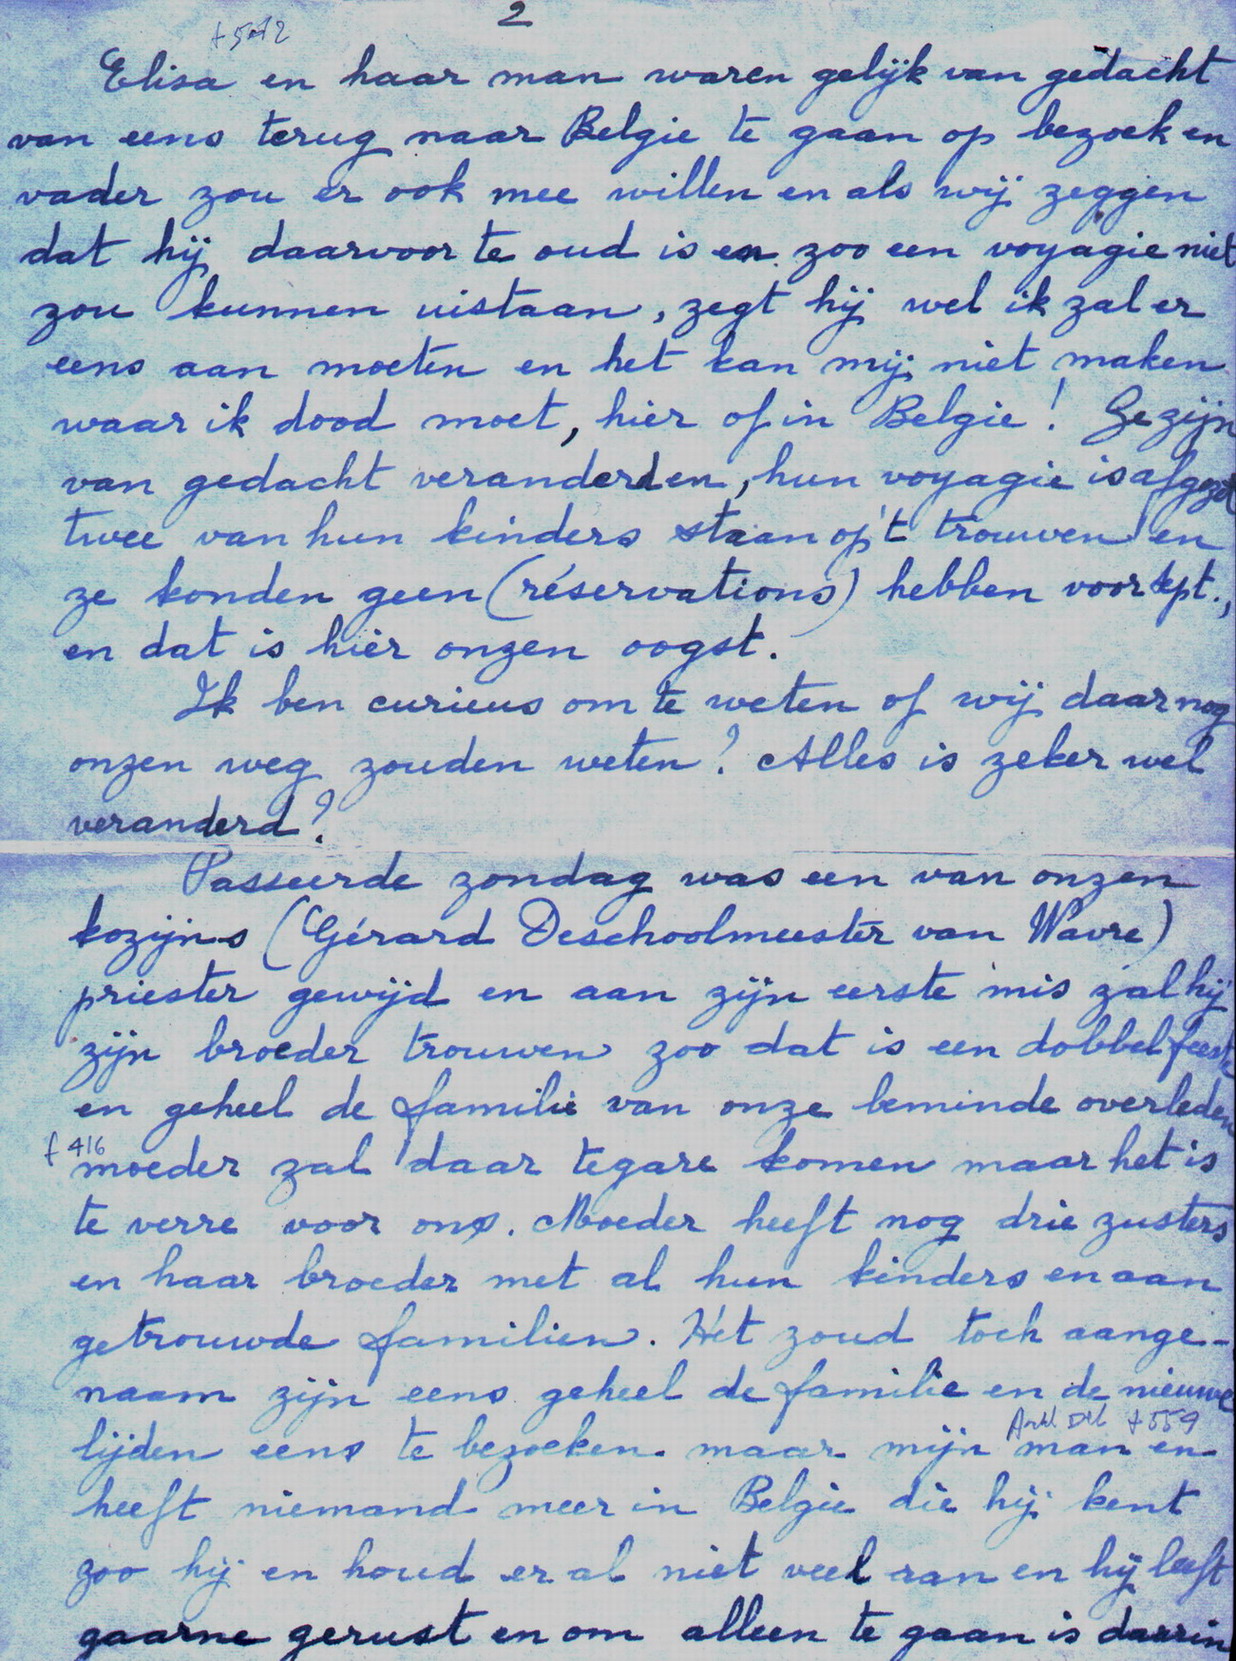 2
Elisa en haar man waren gelijk van gedacht
van eens terug naar Belgie te gaan op bezoek en
vader zou er ook mee willen en als wij zeggen
dat hij daarvoor te oud is en zoo een voyagie niet
zou kunnen uistaan, zegt hij wel ik zal er
eens aan moeten en het kan mij niet maken
waar ik dood moet, hier of in Belgie! Ge zijn
van gedacht veranderden, hun voyagie is afgezet
twee van hun kinders staan op't trouwen en
ze konden geen (réservations) hebben voor sept.,
en dat is hier onzen oogst.
Ik ben curieus om te weten of wij daar nog
onzen weg zouden weten? Alles is zeker wel
veranderd?
Passeerde zondag was een van onzen
kozijns (Gérard Deschoolmeester van Wavre)
priester gewijd en aan zijn eerste mis zal hij
zijn broeder trouwen zoo dat is een dobbel feest
en geheel de familie van onze beminde overleden
f 416
moeder zal daar tegare komen maar het is
te verre voor ons. Moeder heeft nog drie zusters
en haar broeder met al hun kinders en aan
getrouwde familien. Het zoud toch aange-
naam zijn eens geheel de familie en de nieuwe
f 559
lijden eens te bezoeken. maar mijn man en
heeft niemand meer in Belgie die hij kent
zoo hij en houd er al niet veel aan en hij leeft
gaarne gerust en om alleen te gaan is daarin